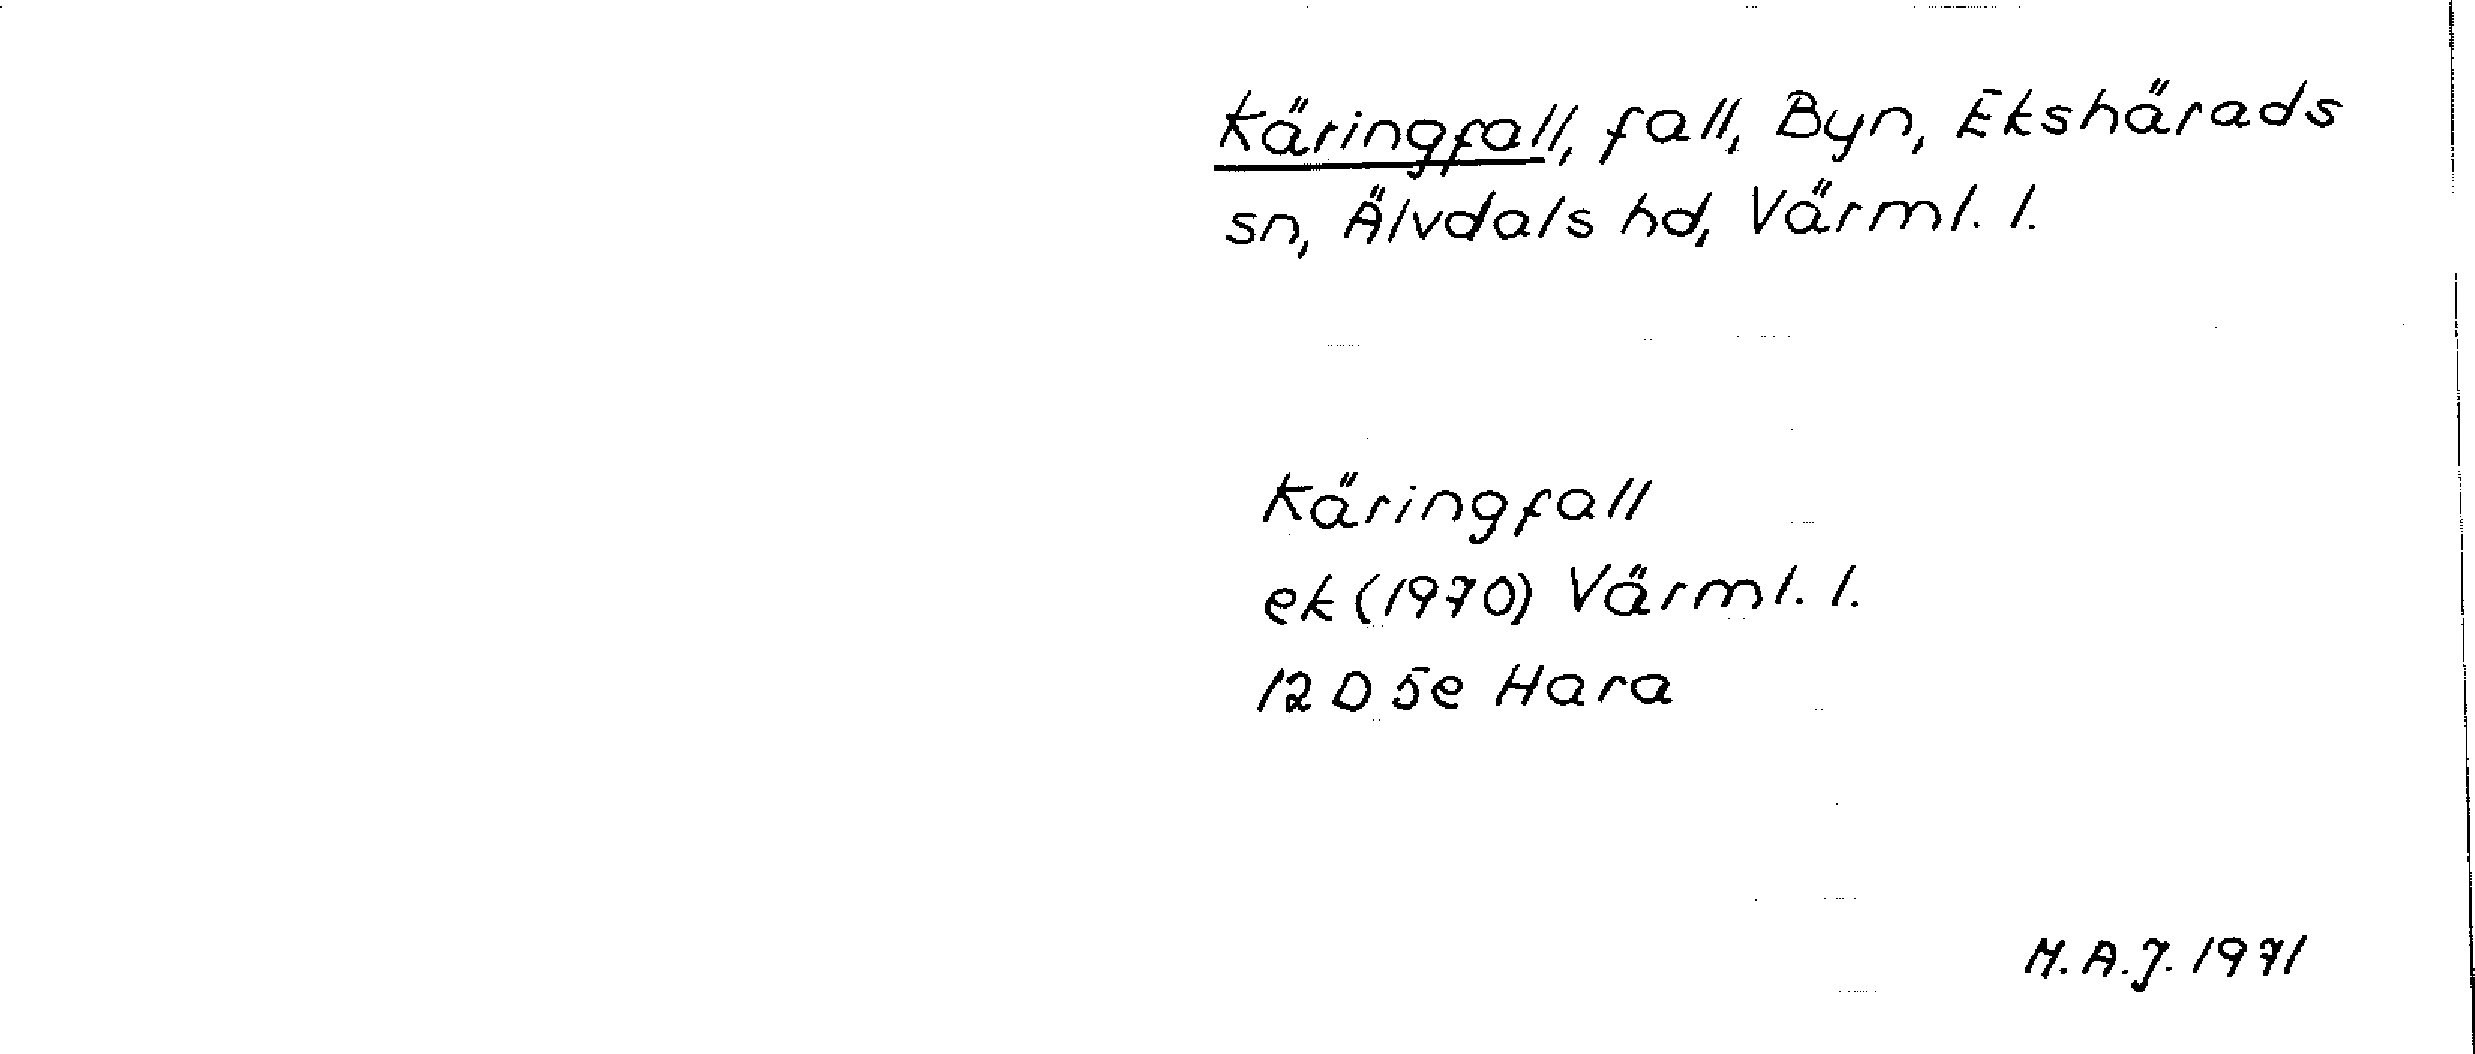 Käringfall, fall, Byn, Ekshärads
sn, Älvdals hd, Värml. l.
Käringfall
ek (1970) Värml. l.
12 D 5e Hara
M.A.J. 1971